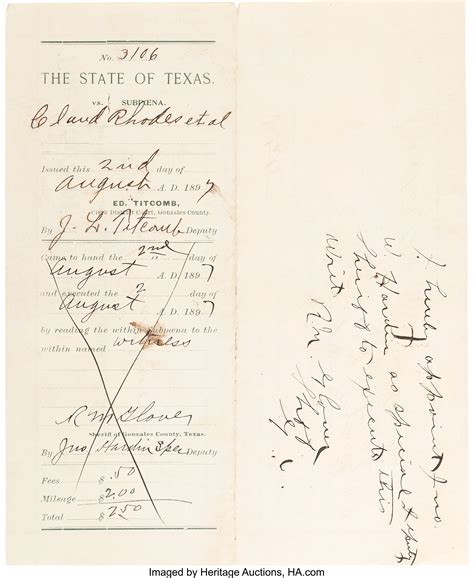 No. 3106
THE STATE OF TEXAS.
vs. SUBPENA.
Claud Rhodes et al
Issued this 2nd day of
August A. D. 1897
ED. TITCOMB,
Clerk District Court, Gonzales County.
By J. L. Titcomb Deputy
Came to hand the 2nd day of
August A. D. 1897
and executed the 2 day of
August A. D. 1897
by reading the within Subpena to the
within named witness
R M Glover
Sheriff of Gonzales County, Texas.
By Jno Hardin Spec Deputy
Fees $ .50
Mileage $ 2.00
Total $ 2.50
I hereby appoint Jno.
W. Hardin as special Deputy
Sheriff to execute this
Writ R. M. Glover
Shff
G. C.
Imaged by Heritage Auctions, HA.com